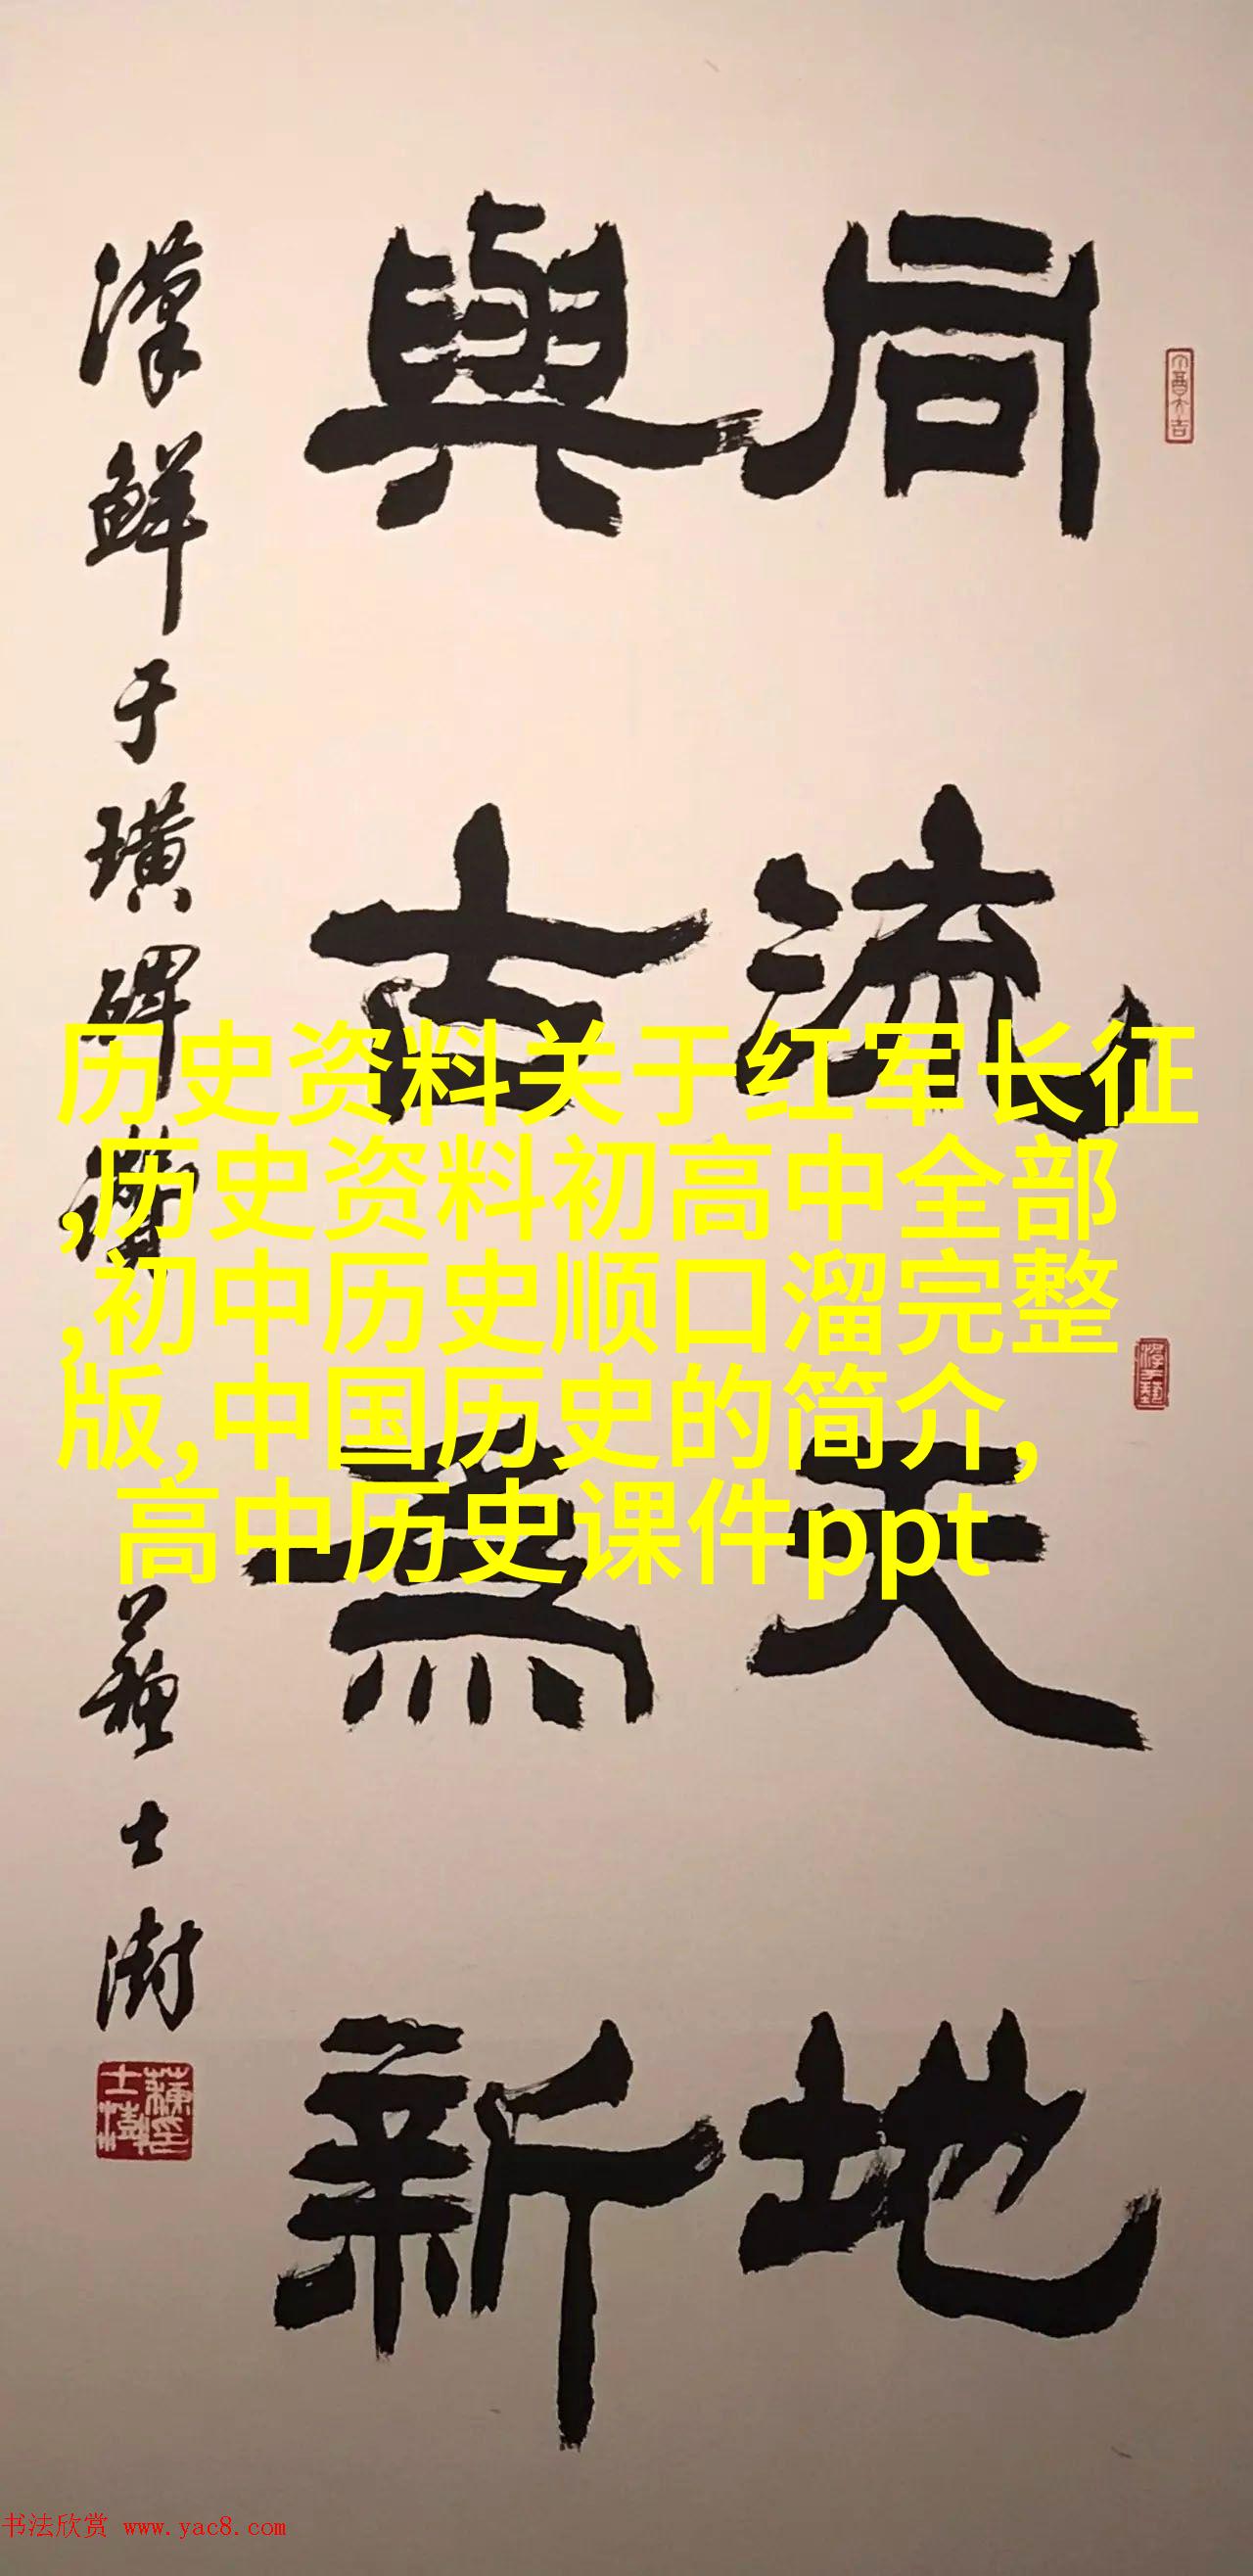 同流天地
與古為新
漢鮮于璜碑語
蘇士澍
历史资料关于红军长征
,历史资料初高中全部
,初中历史顺口溜完整
版,中国历史的简介,
高中历史课件ppt
书法欣赏 www.yac8.com